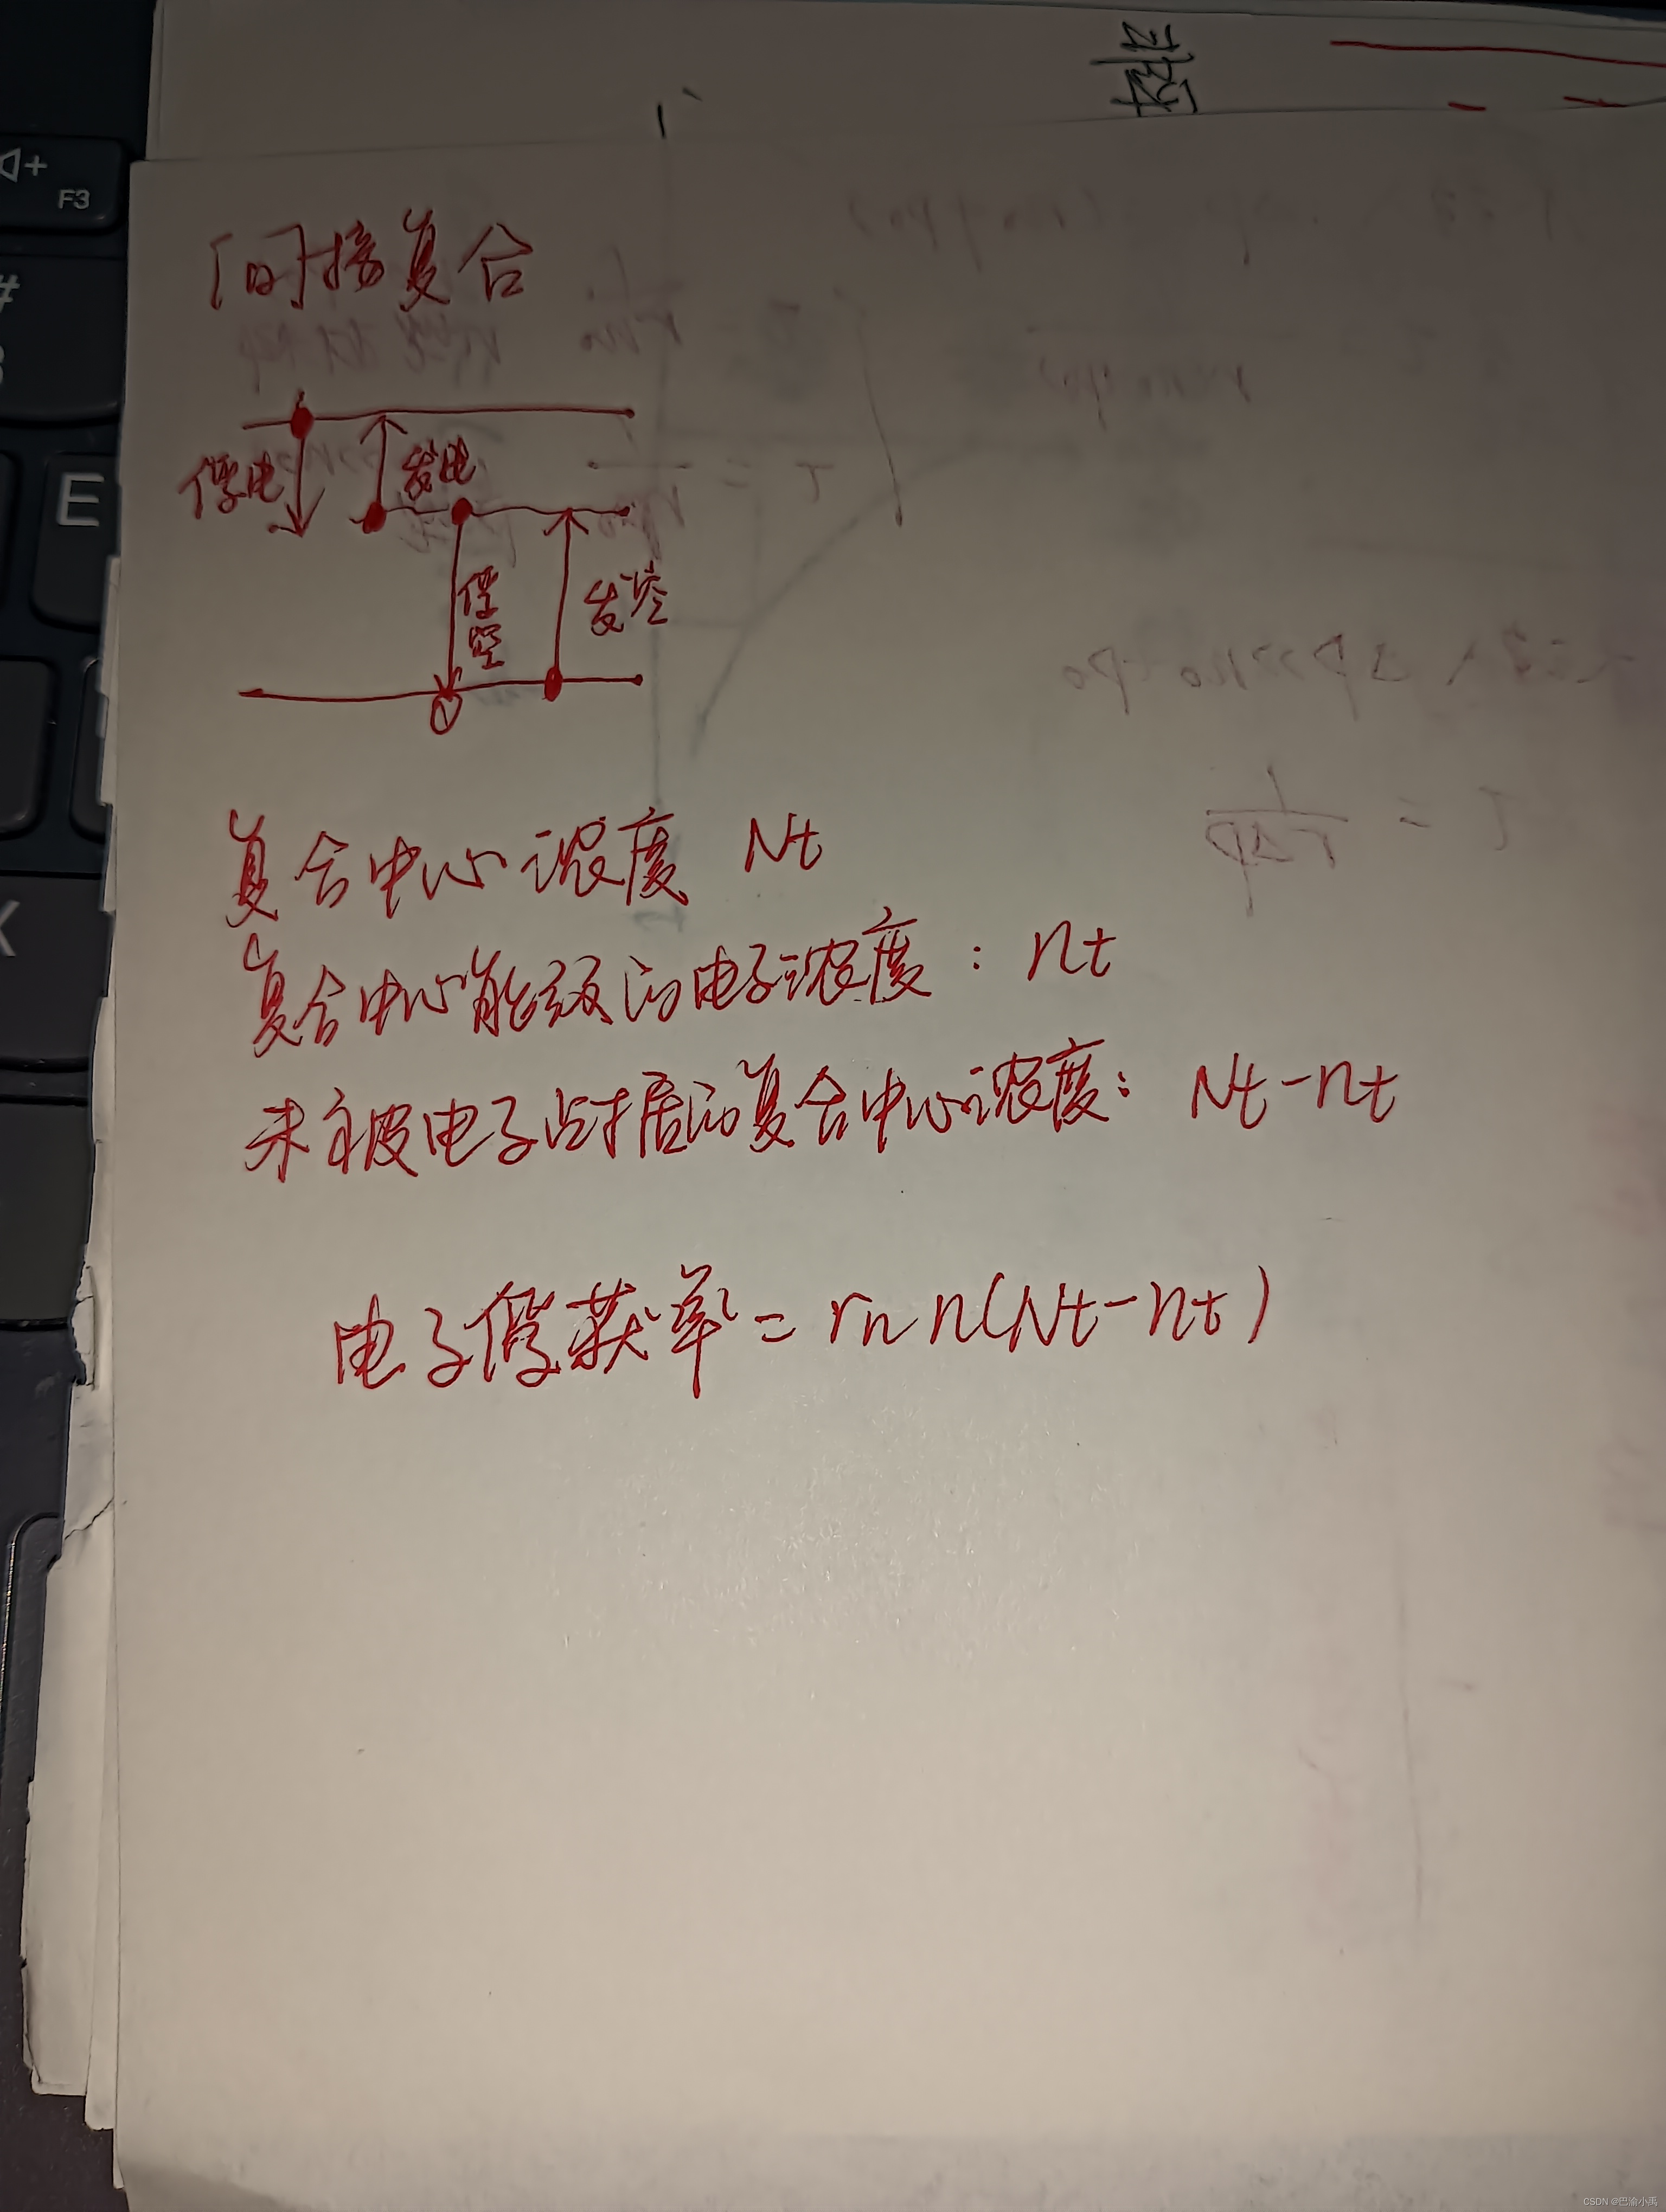 间接复合
俘电
发电
俘空
发空
复合中心浓度 Nt
复合中心能级的电子浓度：nt
未被电子占据的复合中心浓度：Nt-nt
电子俘获率=rn n(Nt-nt)
F3
E
CSDN @巴渝小禹